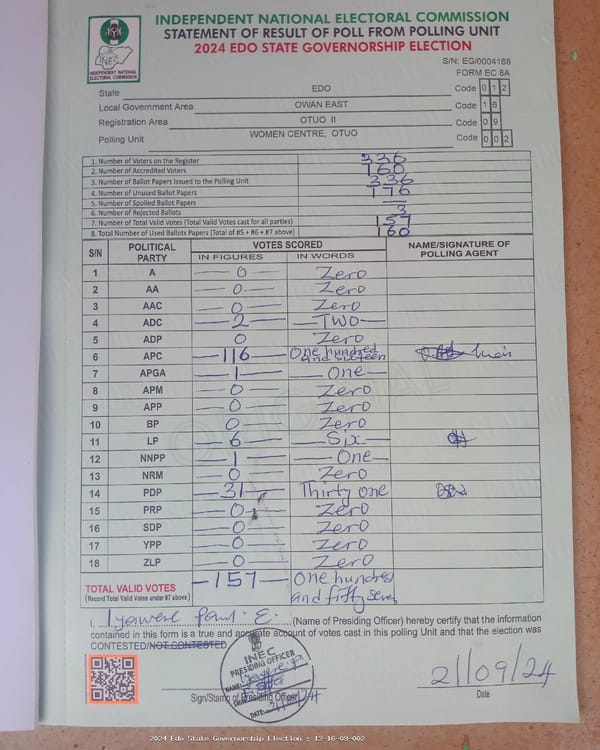 INDEPENDENT NATIONAL ELECTORAL COMMISSION
STATEMENT OF RESULT OF POLL FROM POLLING UNIT
2024 EDO STATE GOVERNORSHIP ELECTION
INEC
INDEPENDENT NATIONAL ELECTORAL COMMISSION
S/N: EG/0004168
FORM EC 8A
State EDO Code 0 1 2
Local Government Area OWAN EAST Code 1 6
Registration Area OTUO II Code 0 9
Polling Unit WOMEN CENTRE, OTUO Code 0 0 2
1. Number of Voters on the Register 336
2. Number of Accredited Voters 160
3. Number of Ballot Papers Issued to the Polling Unit 336
4. Number of Unused Ballot Papers 176
5. Number of Spoiled Ballot Papers —
6. Number of Rejected Ballots 3
7. Number of Total Valid Votes (Total Valid Votes cast for all parties) 157
8. Total Number of Used Ballots Papers (Total of #5 + #6 + #7 above) 160
S/N POLITICAL PARTY VOTES SCORED NAME/SIGNATURE OF POLLING AGENT
IN FIGURES IN WORDS
1 A 0 Zero
2 AA 0 Zero
3 AAC 0 Zero
4 ADC 2 TWO
5 ADP 0 Zero
6 APC 116 One hundred and sixteen
7 APGA 1 One
8 APM 0 Zero
9 APP 0 Zero
10 BP 0 Zero
11 LP 6 Six
12 NNPP 1 One
13 NRM 0 Zero
14 PDP 31 Thirty one
15 PRP 0 Zero
16 SDP 0 Zero
17 YPP 0 Zero
18 ZLP 0 Zero
TOTAL VALID VOTES 157 One hundred
(Record Total Valid Votes under #7 above) and fifty seven
I, Iyawese Paul E. (Name of Presiding Officer) hereby certify that the information
contained in this form is a true and accurate account of votes cast in this polling Unit and that the election was
CONTESTED/NOT CONTESTED
INEC
PRESIDING OFFICER
NAME:
DATE: 21/9/24
Sign/Stamp of Presiding Officer
21/09/24
Date
2024 Edo State Governorship Election : 12-16-09-002